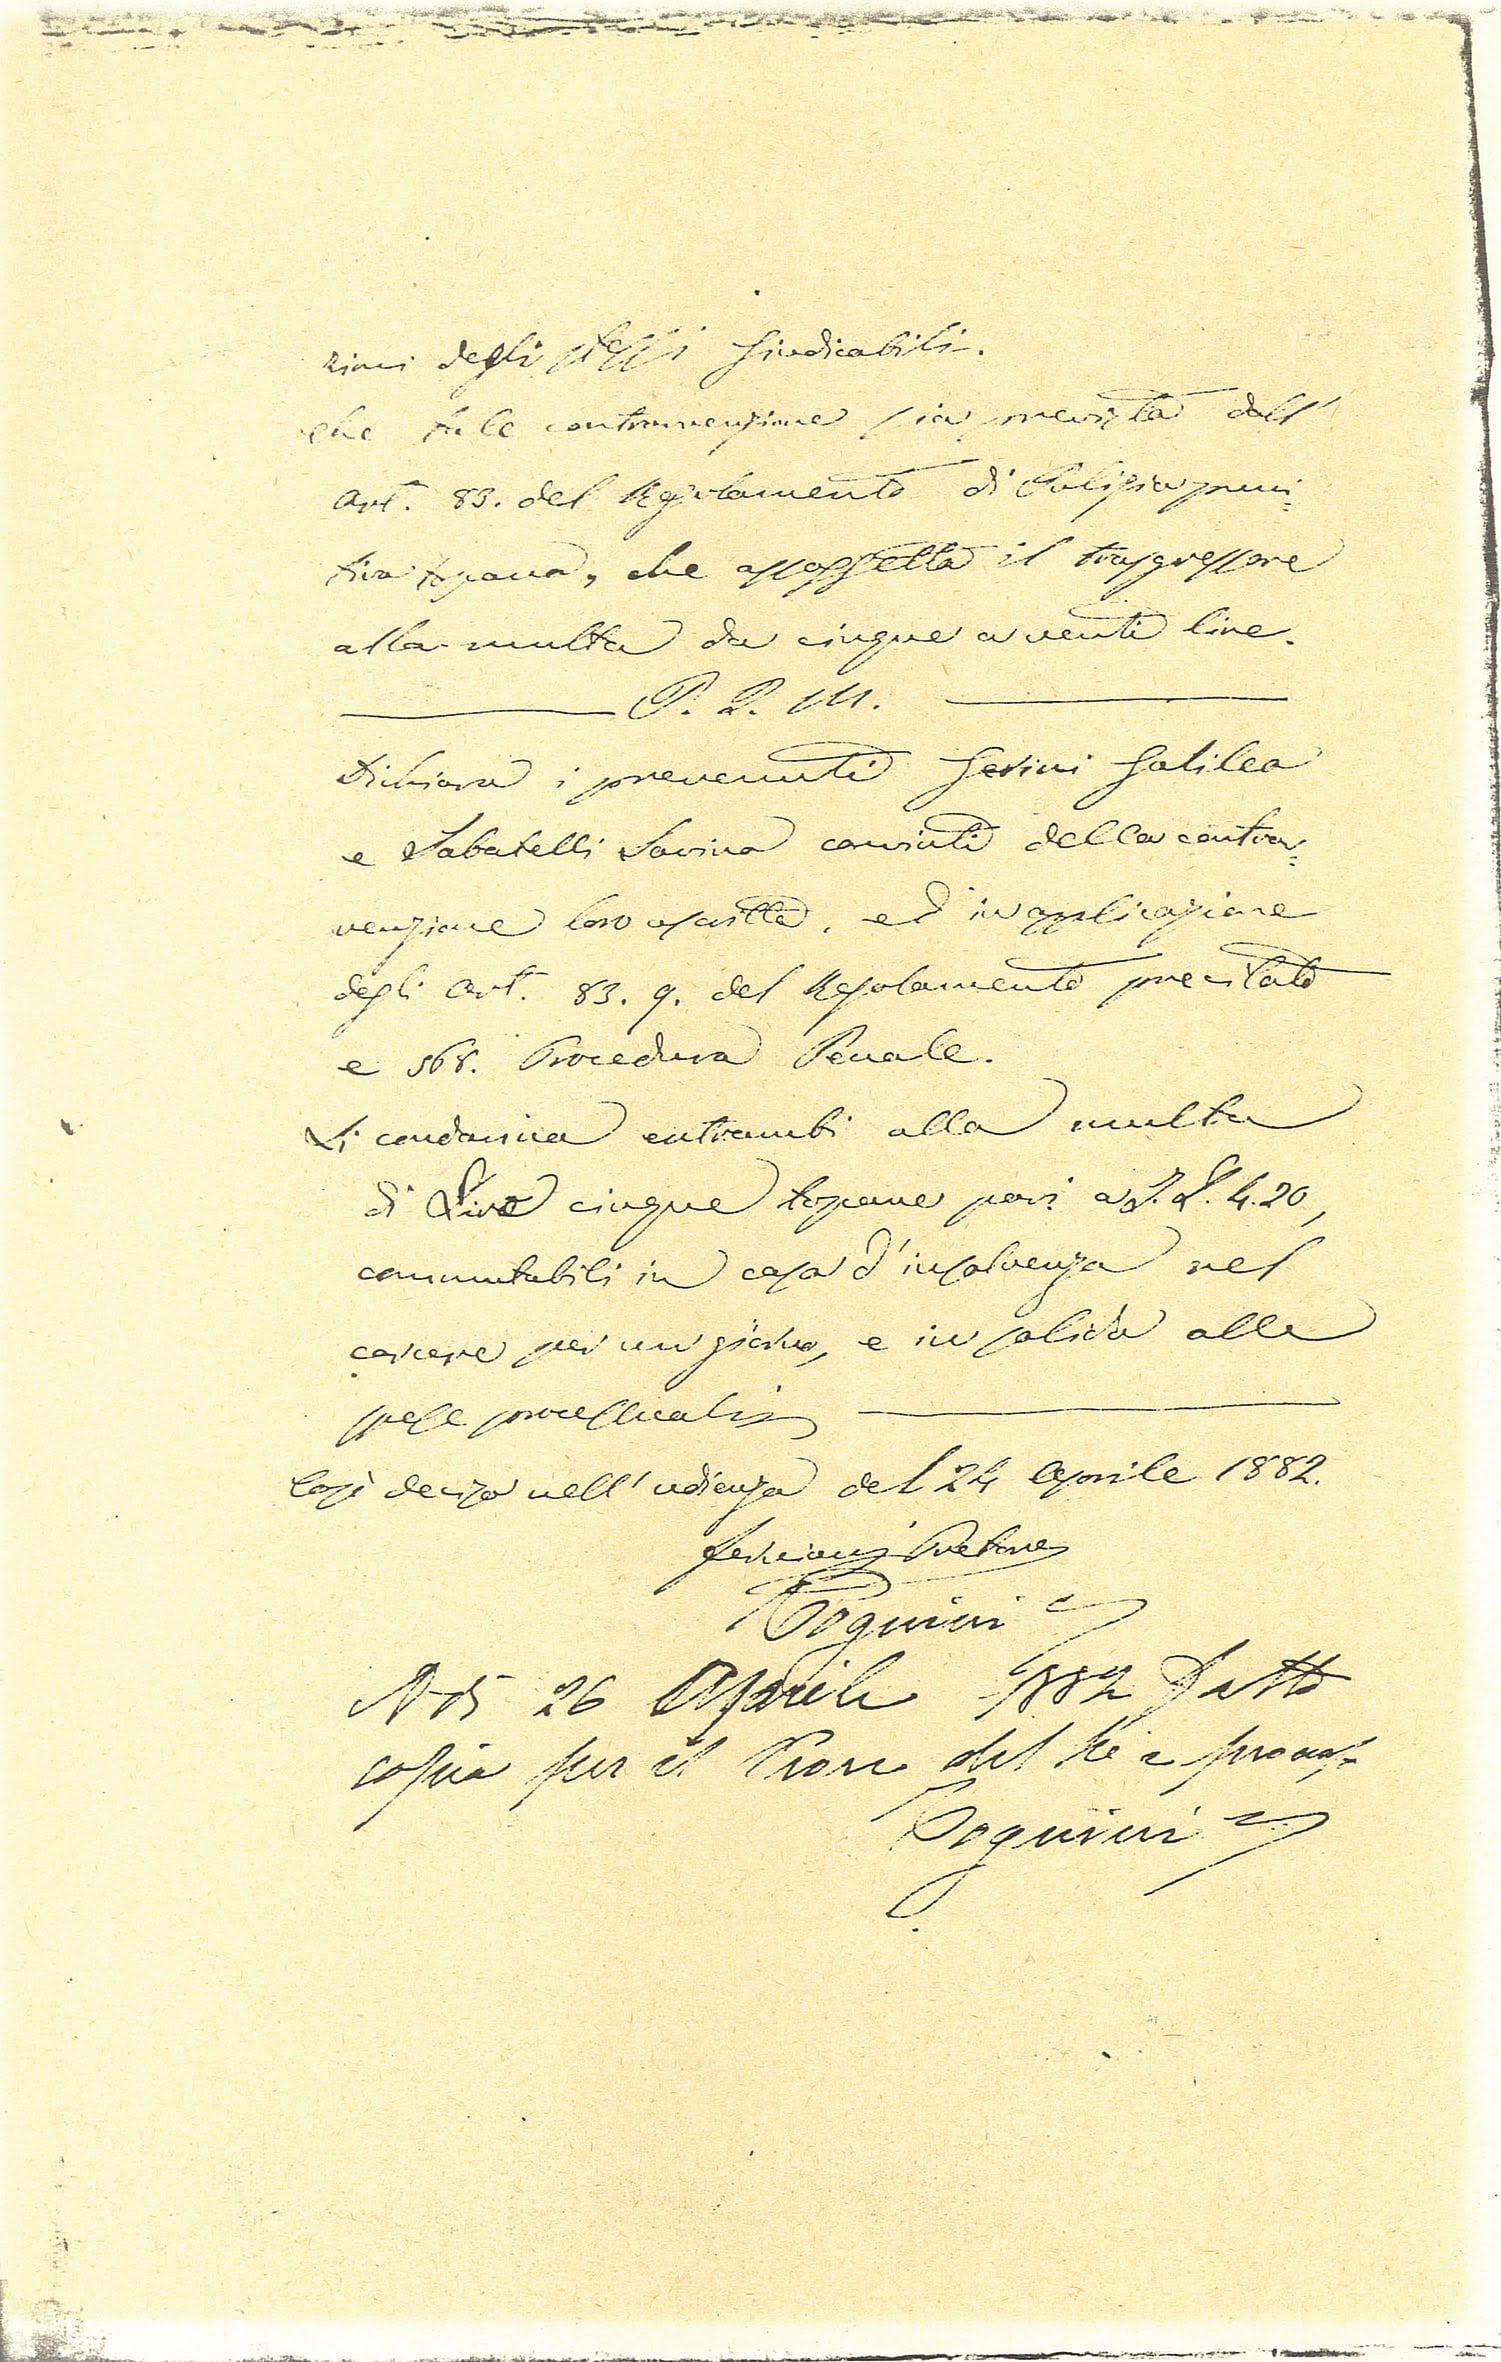 zioni degli stessi Giudicabili.
Che tale contravvenzione sia prevista dall'
Art. 83. del Regolamento di Polizia puni=
tiva toscana, che assoggetta il trasgressore
alla multa da cinque a venti lire.
P. Q. M.
Dichiara i prevenuti Gerini Galilea
e Sabatelli Savina convinti della contrav=
venzione loro ascritta, ed in applicazione
degli Art. 83. 9. del Regolamento precitato
e 568. Procedura Penale.
Li condanna entrambi alla multa
di Lire cinque toscane pari a I. L. 4.20,
commutabili in caso d'insolvenza nel
carcere per un giorno, e in solido alle
spese processuali
Così deciso nell'udienza del 24 Aprile 1882.
Pretore
Pognini
26 Aprile 1882 Fatto
copia per il Proc del Re e
Pognini